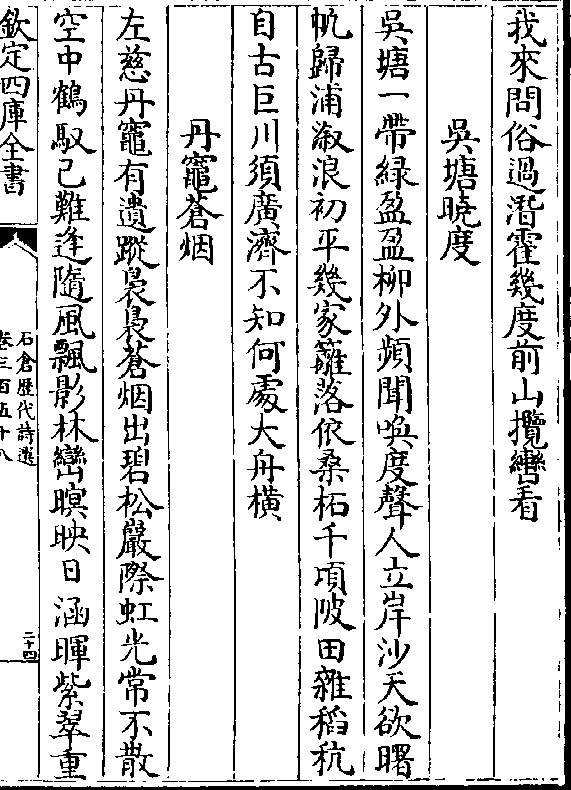 我來問俗過潛霍幾度前山攬轡看
吳塘曉度
吳塘一帶緑盈盈柳外頻聞喚度聲人立岸沙天欲曙
帆歸浦溆浪初平幾家籬落依桑柘千頃陂田雜稻秔
自古巨川須廣濟不知何處大舟橫
丹竈蒼烟
左慈丹竈有遺蹤裊裊蒼烟出碧松嚴際虹光常不散
空中鶴馭已難逢隨風飄影林巒暝映日涵暉紫翠重
欽定四庫全書
石倉歴代詩選
卷三百五十八
二十四